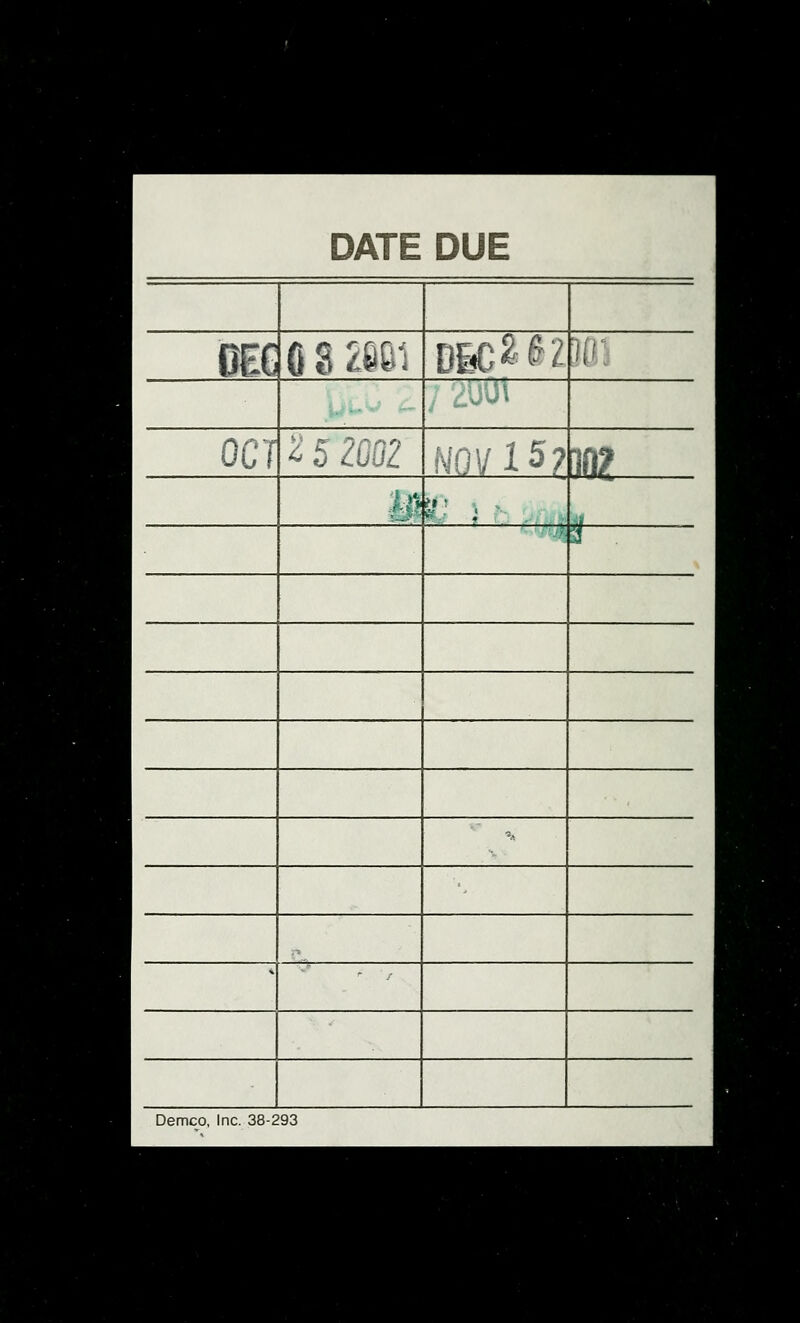 DATE DUE
DEC 03 2001 DEC 26 2001
DEC 27 2001
OCT 25 2002 NOV 15 2002
DEC 16 2003
Demco, Inc. 38-293